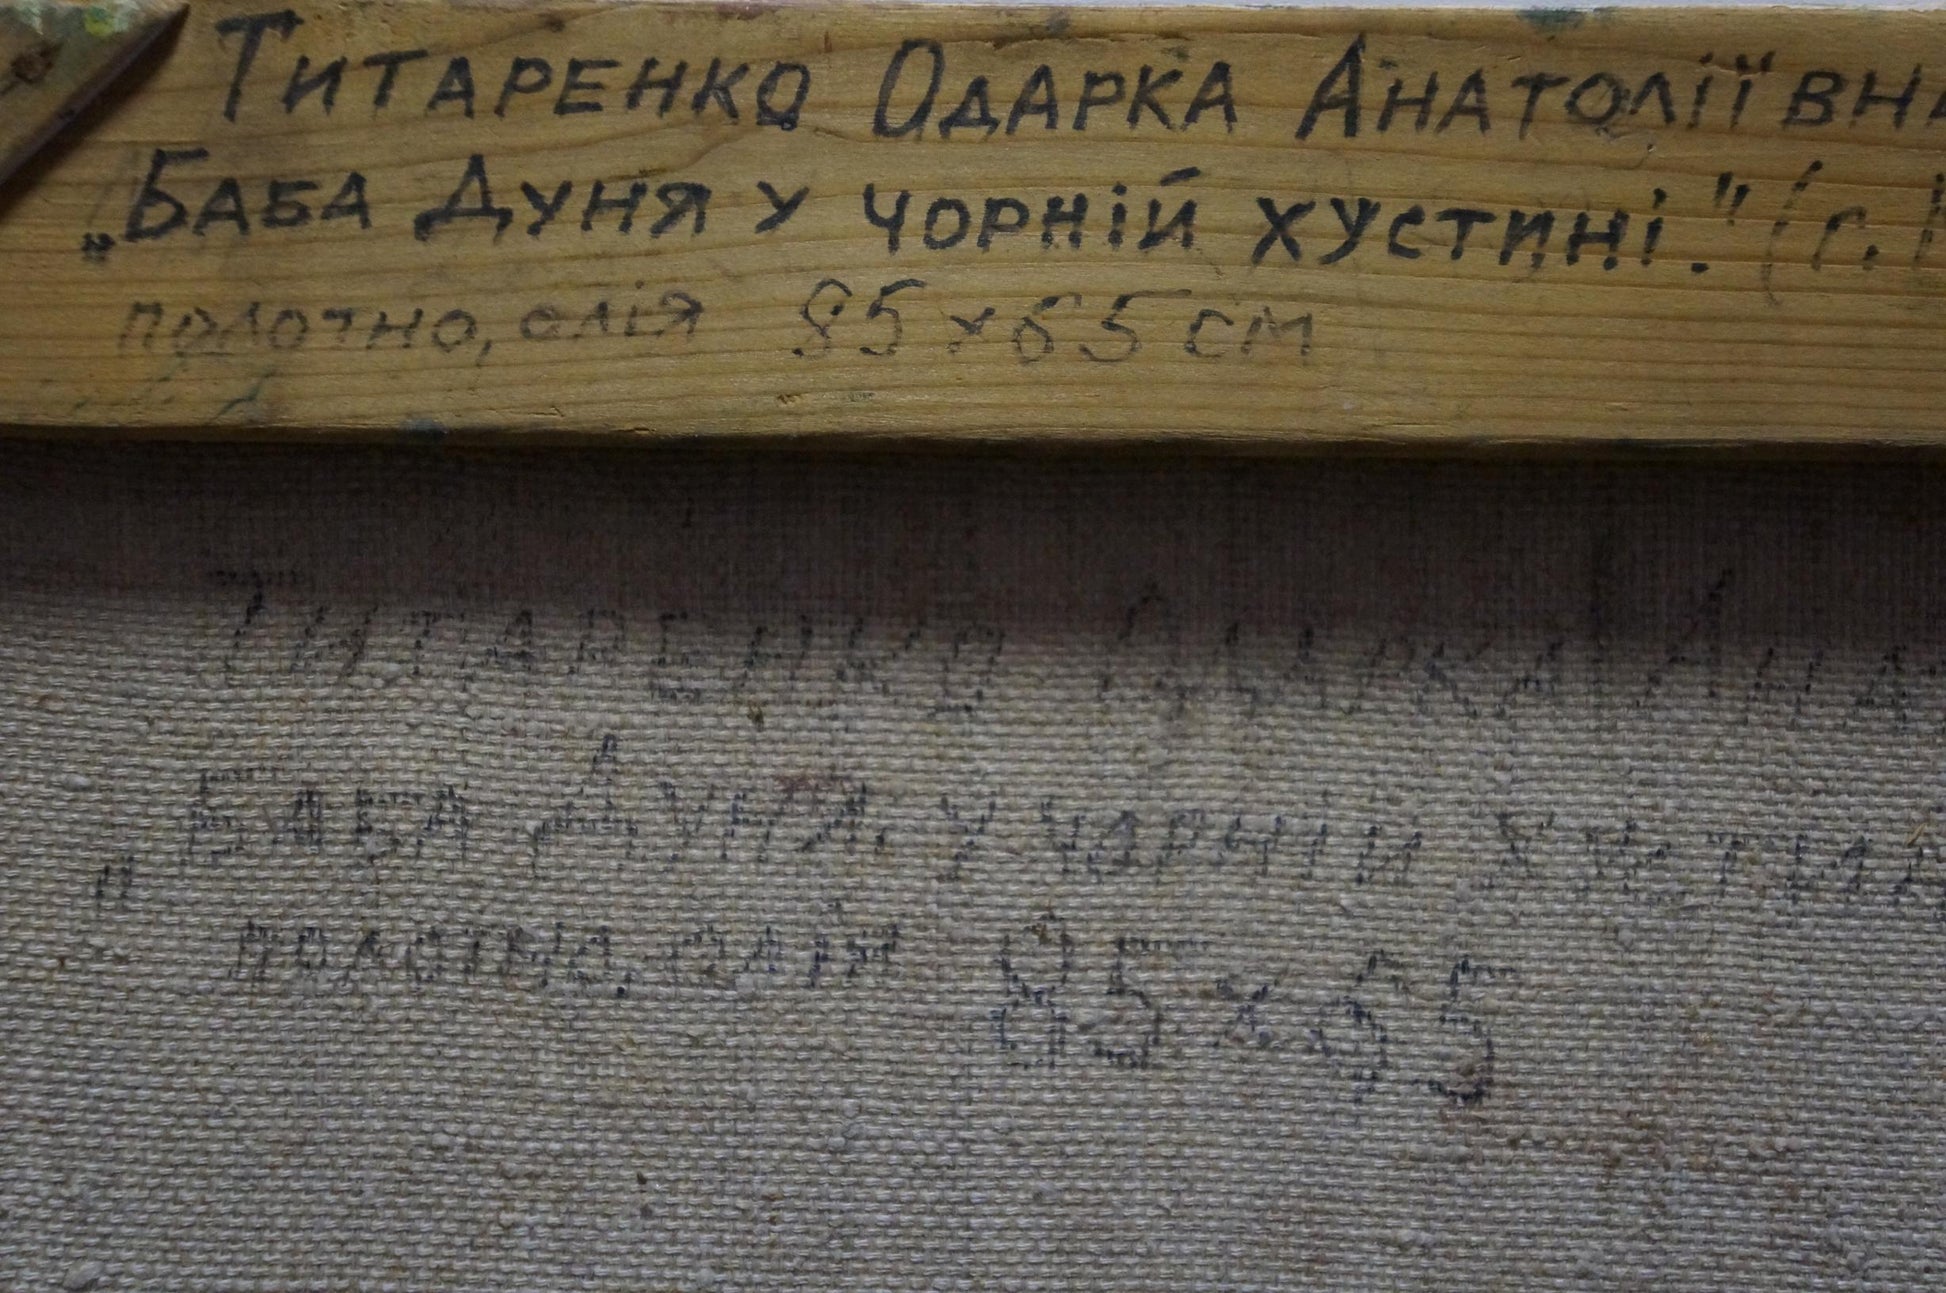 Титаренко Одарка Анатоліївна
„Баба Дуня у чорній хустині." (с.
полотно, олія 85х65 см
Титаренко Одарка Ана
„Баба Дуня у чорній хустин
полотно, олія 85х65